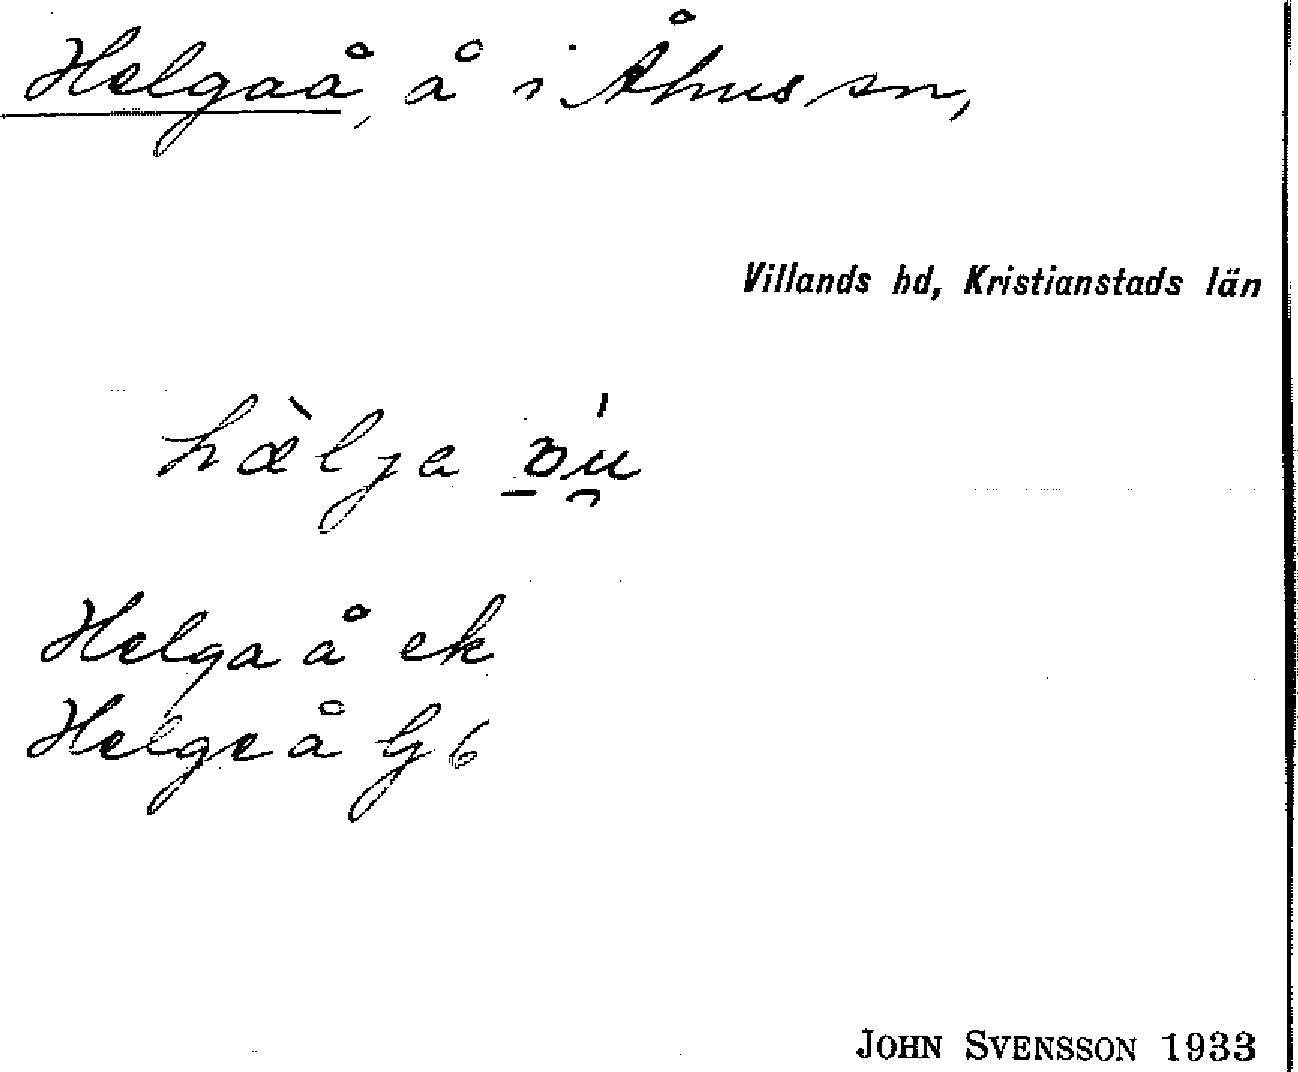 Helgaå, å i Åhus sn,
Villands hd, Kristianstads län
hælja
Helgaå ek
Helgeå G6
JOHN SVENSSON 1933